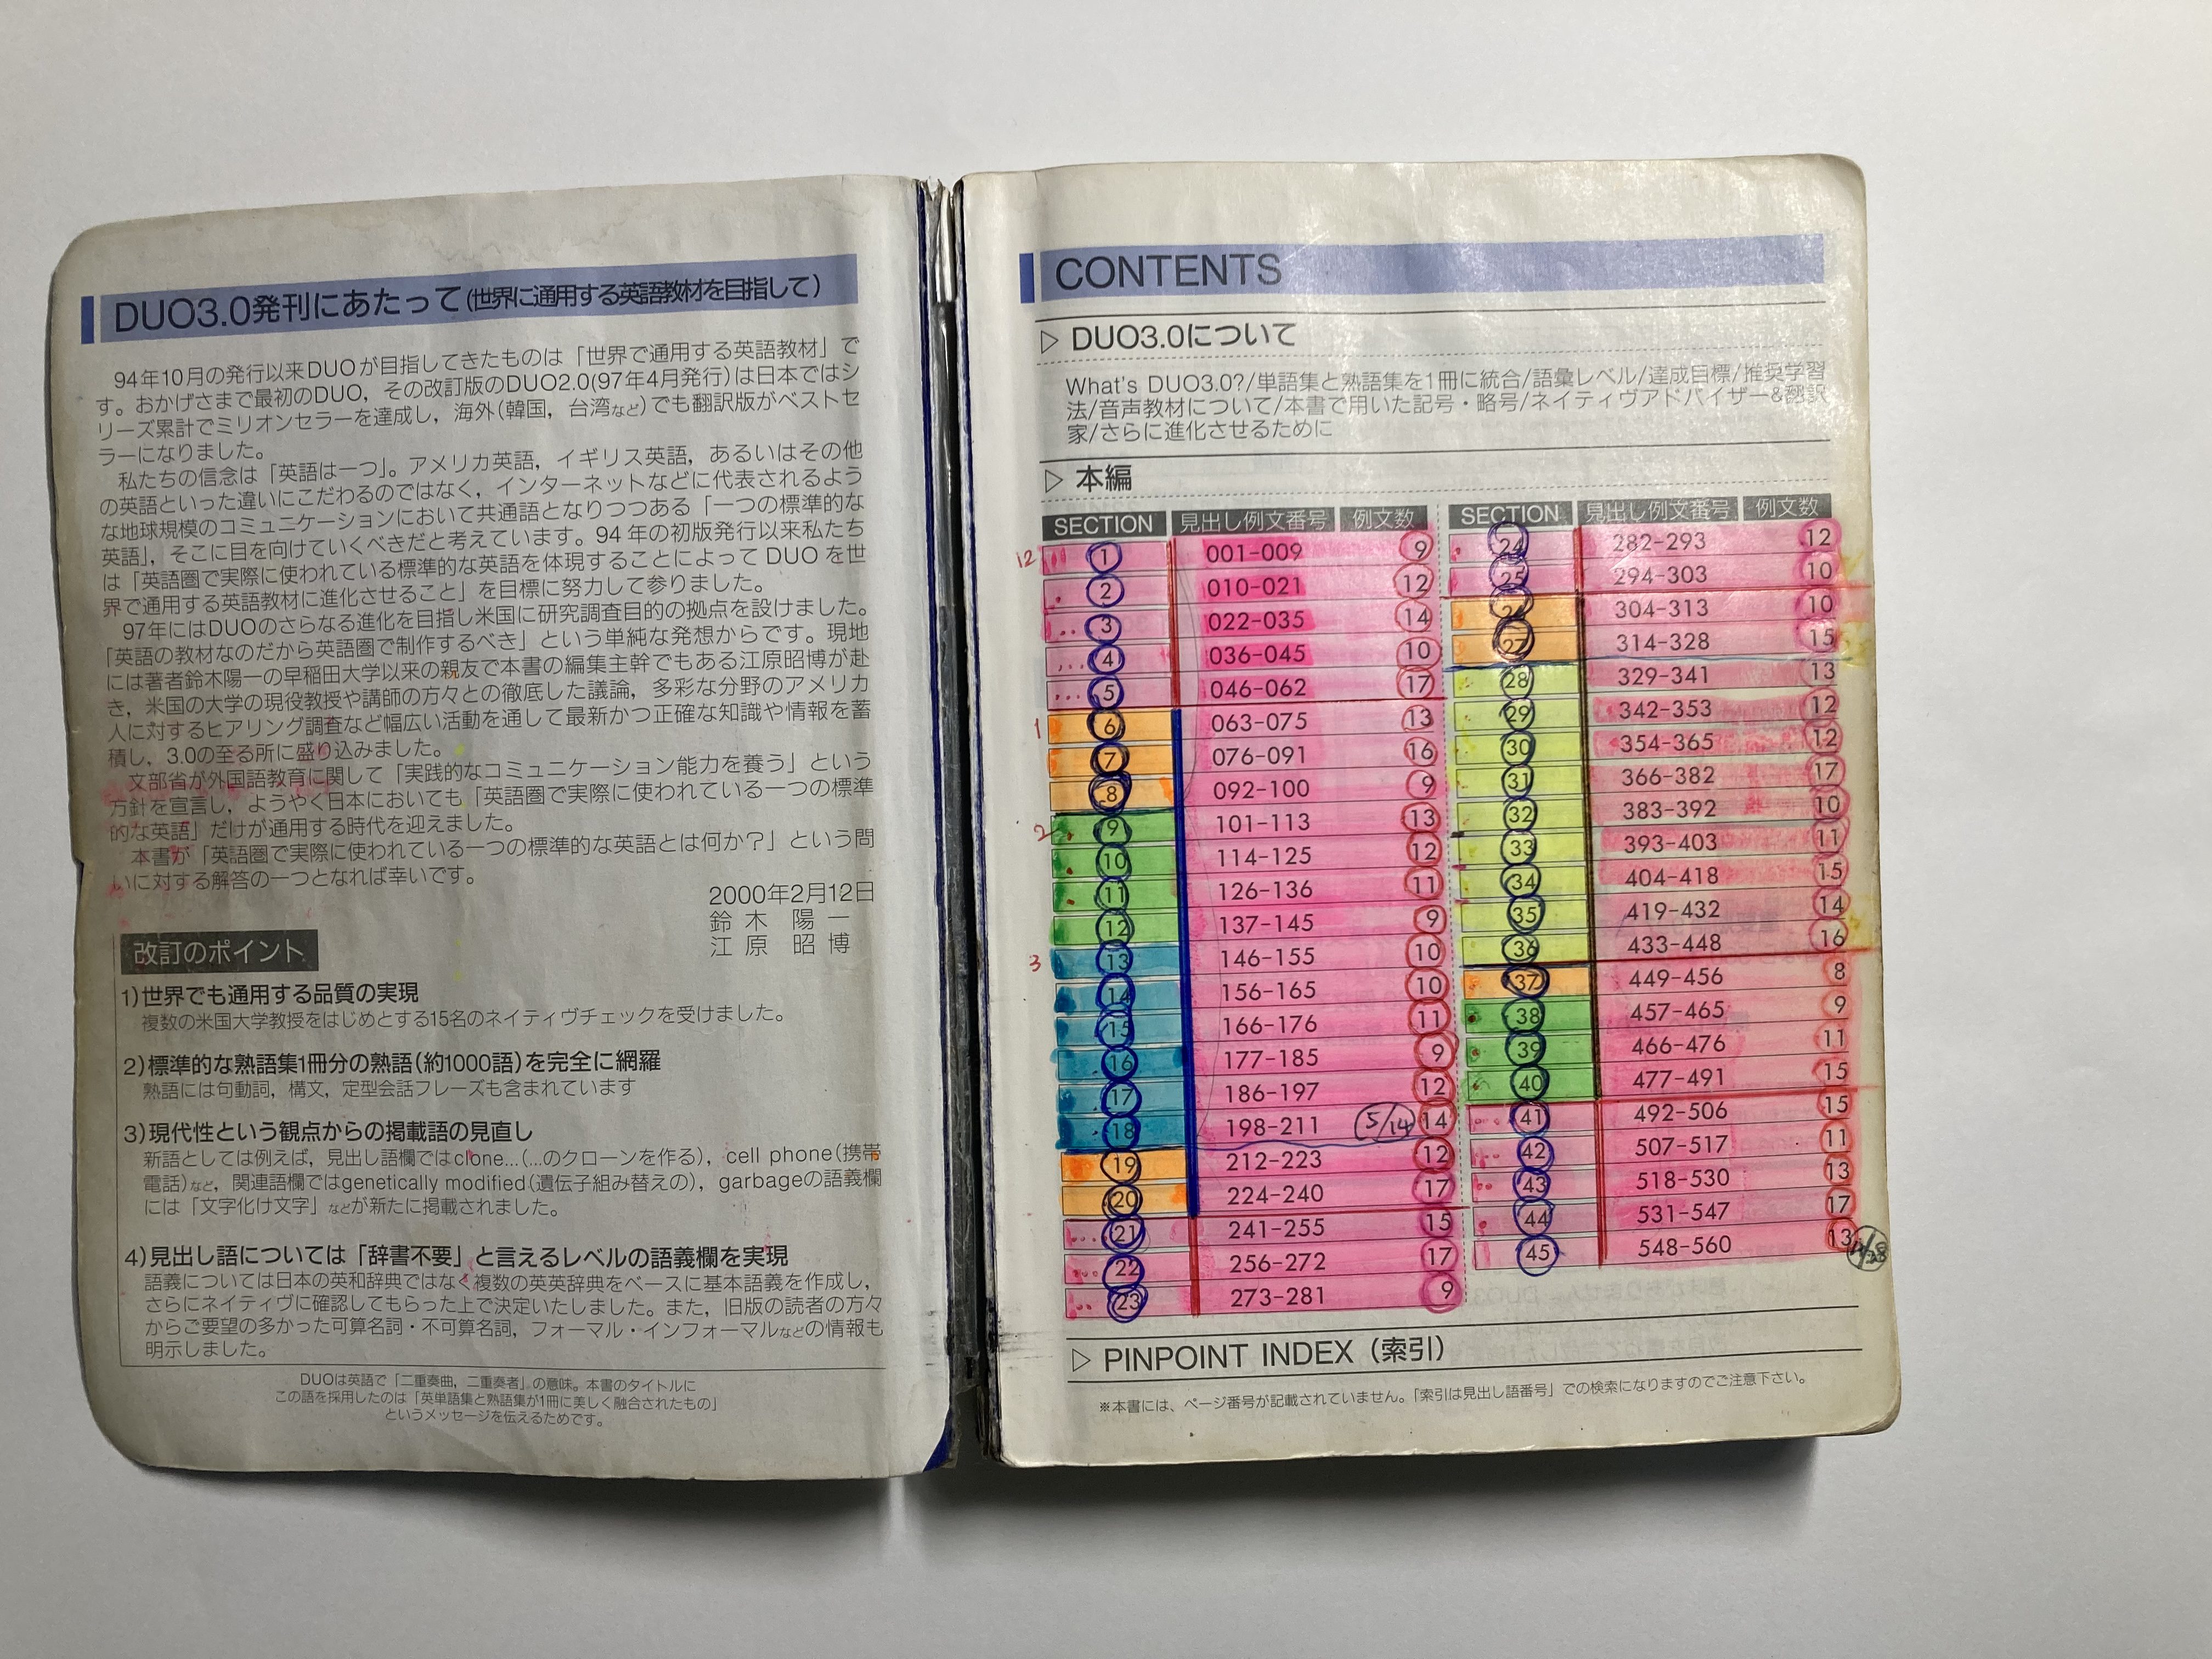 DUO3.0発刊にあたって(世界に通用する英語教材を目指して)
94年10月の発行以来DUOが目指してきたものは「世界で通用する英語教材」で
す。おかげさまで最初のDUO，その改訂版のDUO2.0(97年4月発行)は日本ではシ
リーズ累計でミリオンセラーを達成し，海外(韓国，台湾など)でも翻訳版がベストセ
ラーになりました。
私たちの信念は「英語は一つ」。アメリカ英語，イギリス英語，あるいはその他
の英語といった違いにこだわるのではなく，インターネットなどに代表されるよう
な地球規模のコミュニケーションにおいて共通語となりつつある「一つの標準的な
英語」，そこに目を向けていくべきだと考えています。94年の初版発行以来私たち
は「英語圏で実際に使われている標準的な英語を体現することによってDUOを世
界で通用する英語教材に進化させること」を目標に努力して参りました。
97年にはDUOのさらなる進化を目指し米国に研究調査目的の拠点を設けました。
「英語の教材なのだから英語圏で制作するべき」という単純な発想からです。現地
には著者鈴木陽一の早稲田大学以来の親友で本書の編集主幹でもある江原昭博が赴
き，米国の大学の現役教授や講師の方々との徹底した議論，多彩な分野のアメリカ
人に対するヒアリング調査など幅広い活動を通して最新かつ正確な知識や情報を蓄
積し，3.0の至る所に盛り込みました。
文部省が外国語教育に関して「実践的なコミュニケーション能力を養う」という
方針を宣言し，ようやく日本においても「英語圏で実際に使われている一つの標準
的な英語」だけが通用する時代を迎えました。
本書が「英語圏で実際に使われている一つの標準的な英語とは何か？」という問
いに対する解答の一つとなれば幸いです。
2000年2月12日
鈴木 陽一
江原 昭博
改訂のポイント
1)世界でも通用する品質の実現
複数の米国大学教授をはじめとする15名のネイティヴチェックを受けました。
2)標準的な熟語集1冊分の熟語(約1000語)を完全に網羅
熟語には句動詞，構文，定型会話フレーズも含まれています
3)現代性という観点からの掲載語の見直し
新語としては例えば，見出し語欄ではclone...(...のクローンを作る)，cell phone(携帯
電話)など，関連語欄ではgenetically modified(遺伝子組み替えの)，garbageの語義欄
には「文字化け文字」などが新たに掲載されました。
4)見出し語については「辞書不要」と言えるレベルの語義欄を実現
語義については日本の英和辞典ではなく複数の英英辞典をベースに基本語義を作成し，
さらにネイティヴに確認してもらった上で決定いたしました。また，旧版の読者の方々
からご要望の多かった可算名詞・不可算名詞，フォーマル・インフォーマルなどの情報も
明示しました。
DUOは英語で「二重奏曲，二重奏者」の意味。本書のタイトルに
この語を採用したのは「英単語集と熟語集が1冊に美しく融合されたもの」
というメッセージを伝えるためです。
CONTENTS
▷ DUO3.0について
What's DUO3.0?/単語集と熟語集を1冊に統合/語彙レベル/達成目標/推奨学習
法/音声教材について/本書で用いた記号・略号/ネイティヴアドバイザー&翻訳
家/さらに進化させるために
▷ 本編
SECTION 見出し例文番号 例文数
12 1 001-009 9
2 010-021 12
3 022-035 14
4 036-045 10
5 046-062 17
1 6 063-075 13
7 076-091 16
8 092-100 9
2 9 101-113 13
10 114-125 12
11 126-136 11
12 137-145 9
3 13 146-155 10
14 156-165 10
15 166-176 11
16 177-185 9
17 186-197 12
18 198-211 5/14 14
19 212-223 12
20 224-240 17
21 241-255 15
22 256-272 17
23 273-281 9
SECTION 見出し例文番号 例文数
24 282-293 12
25 294-303 10
26 304-313 10
27 314-328 15
28 329-341 13
29 342-353 12
30 354-365 12
31 366-382 17
32 383-392 10
33 393-403 11
34 404-418 15
35 419-432 14
36 433-448 16
37 449-456 8
38 457-465 9
39 466-476 11
40 477-491 15
41 492-506 15
42 507-517 11
43 518-530 13
44 531-547 17
45 548-560 13
▷ PINPOINT INDEX（索引）
※本書には、ページ番号が記載されていません。「索引は見出し語番号」での検索になりますのでご注意下さい。